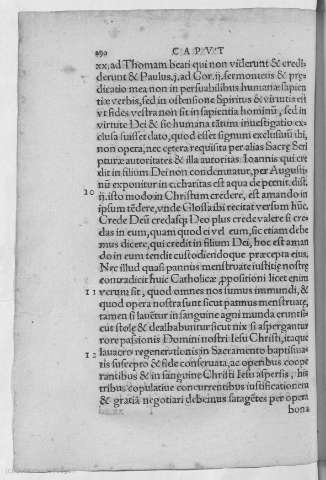 290 CAPVT
xx, ad Thomam beati qui non viderunt & credi
derunt & Paulus. j. ad Cor. ij. sermo meus & prę
dicatio mea non in persuabilibus humanæ sapien
tiæ verbis, sed in ostensione Spiritus & virtutis est
vt fides vestra non sit in sapientia hominũ, sed in
virtute Dei & sic humana tãtum inuestigatio ex-
clusa fuisset dato, quod esset signum exclusiuũ ibi,
non opera, nec cetera requisita per alias Sacrę Scri
pturæ autoritates & illa autoritas Ioannis qui cre
dit in filium Dei non condemnatur, per Augusti-
nũ exponitur in c. charitas est aqua de pœnit. dist.
10 ij. isto modo in Christum credere, est amando in
ipsum tẽdere, vnde Glossa ibi recitat versum hũc.
Crede Deũ credasq; Deo plus crede valere si cre
das in eum, quam quod ei vel eum, sic etiam debe
mus dicere, qui credit in filium Dei, hoc est aman
do in eum tendit custodiendoque præcepta eius.
Nec illud quasi pannus menstruatę iustitię nostrę
contradicit huic Catholicæ ꝓpositioni licet enim
11 verum sit, quod omnes nos sumus immundi, &
quod opera nostra sunt sicut pannus menstruatę,
tamen si lauẽtur in sanguine agni munda erunt si-
cut stolę & dealbabuntur sicut nix si aspergantur
rore passionis Domini nostri Iesu Christi, itaque
12 lauacro regenerationis in Sacramento baptisma-
tis suscepto & fide conseruata, ac operibus coope
rantibus & in sanguine Christi Iesu aspersis, his
tribus copulatiue concurrentibus iustificationem
& gratiã negotiari debemus satagẽtes per opera
bona